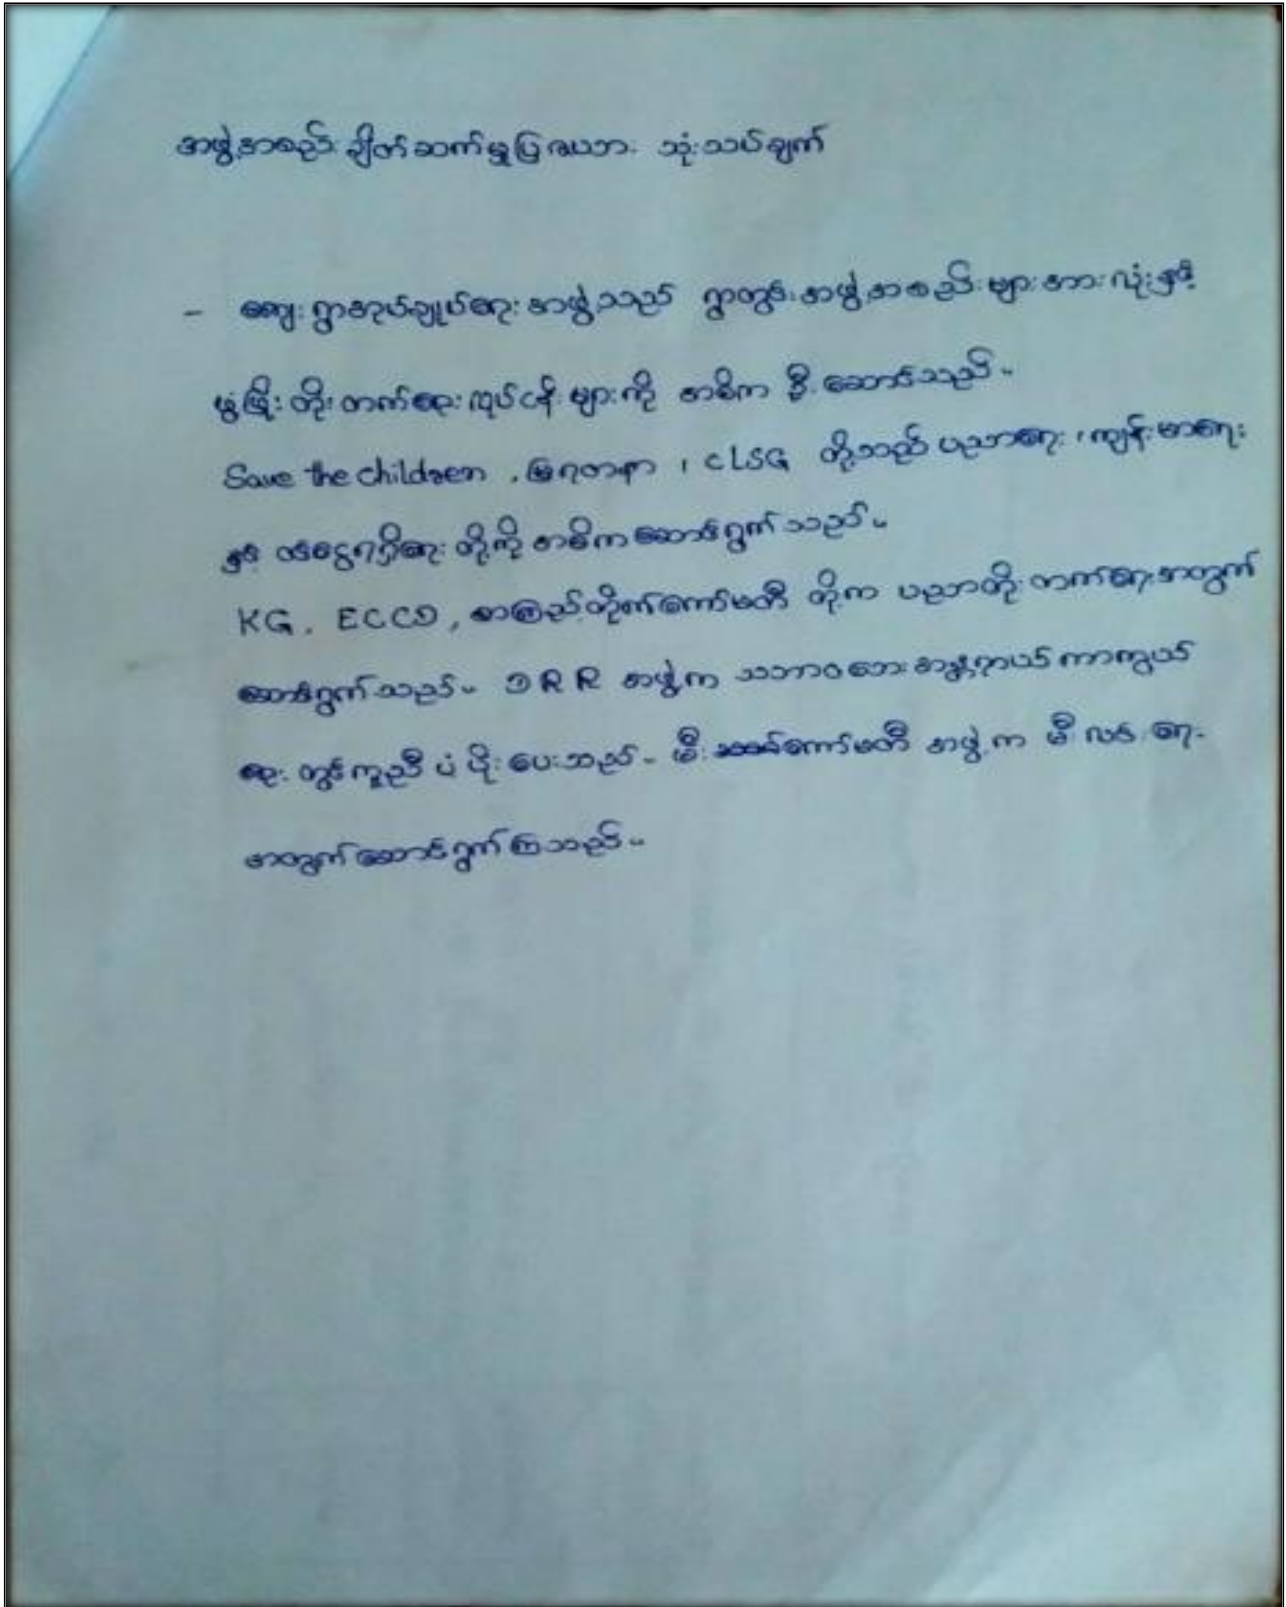 အဖွဲ့အစည်းချိတ်ဆက်မှုပြဇယား သုံးသပ်ချက်
- ကျေးရွာအုပ်ချုပ်ရေးအဖွဲ့သည် ရွာတွင်းအဖွဲ့အစည်းများအားလုံးနှင့်
ဖွံ့ဖြိုးတိုးတက်ရေးလုပ်ငန်းများကို အဓိက ဦးဆောင်သည်။
Save the children ၊ မြရတနာ ၊ CLSG တို့သည် ပညာရေး ၊ ကျန်းမာရေး
နှင့် ရရှိရေးတို့ကို အဓိကဆောင်ရွက်သည်။
KG, ECCD, စာကြည့်တိုက်ကော်မတီ တို့က ပညာတိုးတက်ရေးအတွက်
ဆောင်ရွက်သည်။ DRR အဖွဲ့က သဘာဝဘေးအန္တရာယ် ကာကွယ်
ရေးတွင်ကူညီပံ့ပိုးပေးသည်။ မီးကော်မတီ အဖွဲ့က မီးလင်းရေး
အတွက်ဆောင်ရွက်ကြသည်။